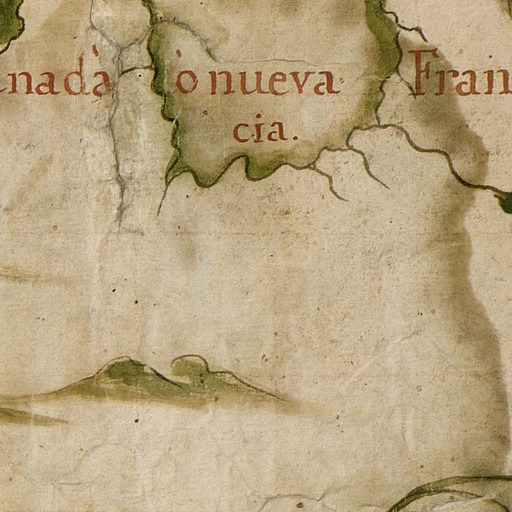 nadà ò nueva Fran
cia.